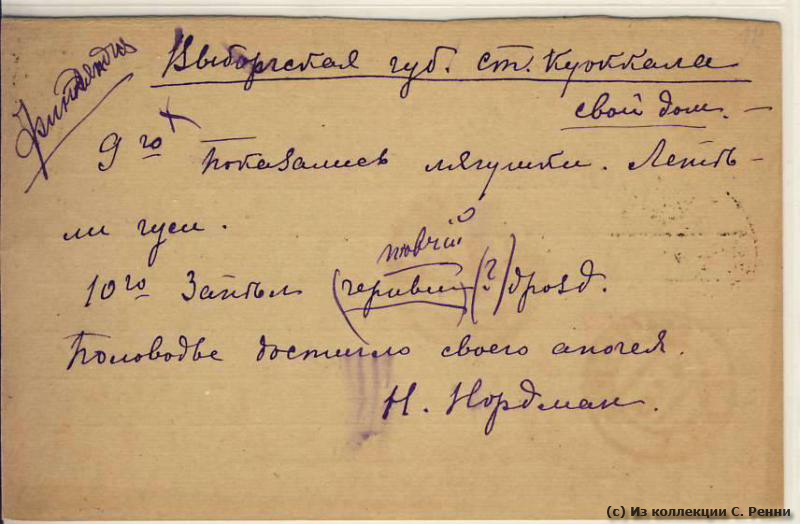 Финляндия
Выборгская губ. ст. Куоккала
свой дом. —
9го Показались лягушки. Летѣ-
ли гуси.
певчій
10го Запѣлъ (черный) (?) дрозд.
Половодье достигло своего апогея.
Н. Нордман.
(c) Из коллекции С. Ренни